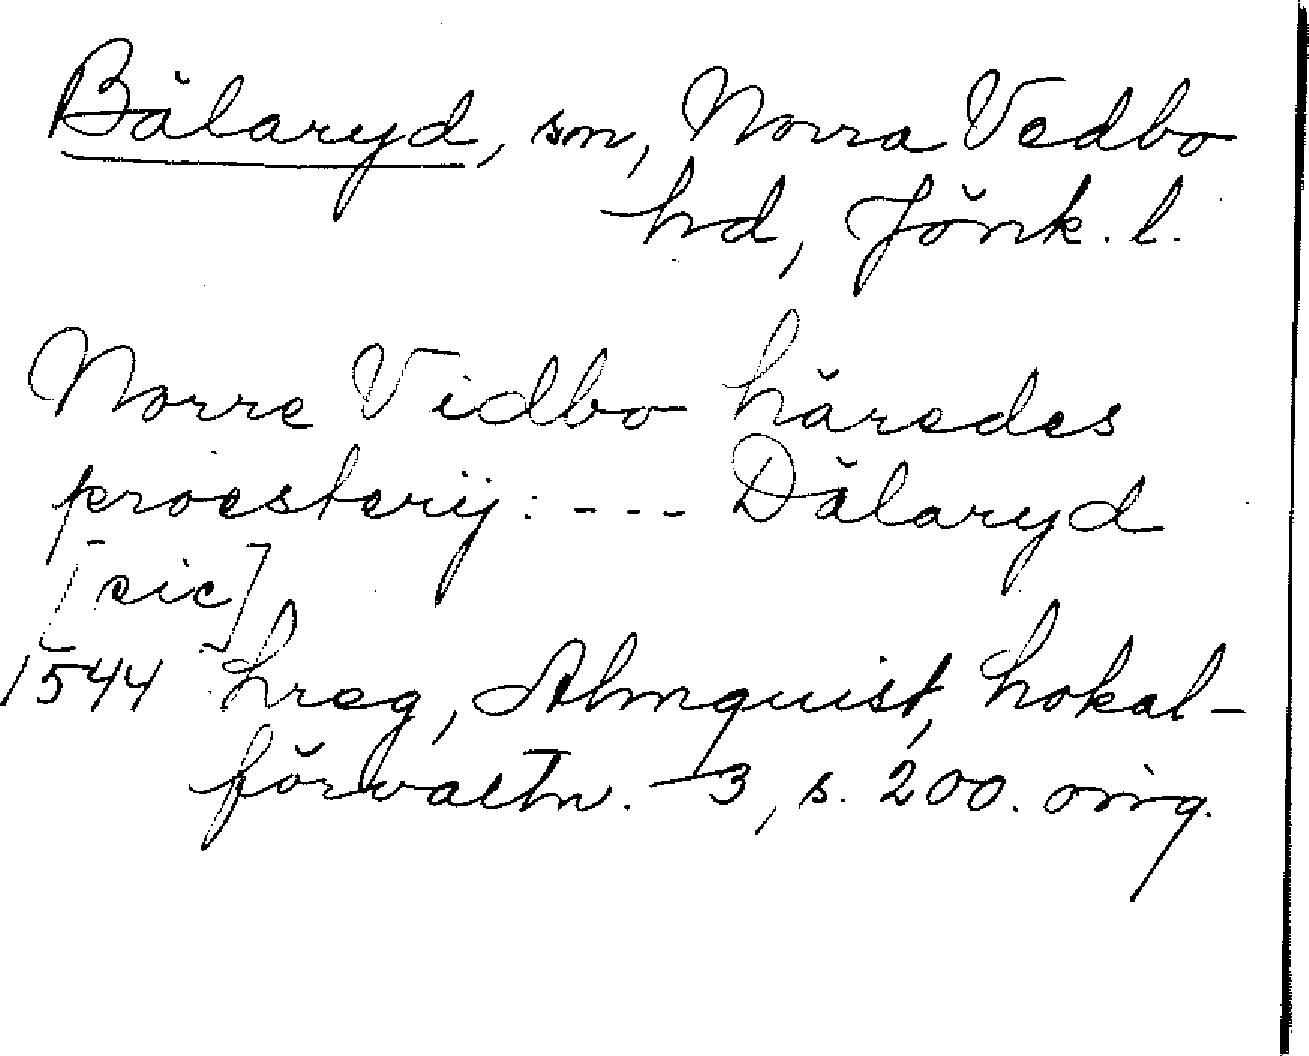 Bälaryd, sn, Norra Vedbo
hd, Jönk. l.
Norre Vidbo häredes
proesterij: --- Dälaryd
[sic]
1544 Lreg, Almquist, Lokal-
förvaltn. 3, s. 200. orig.